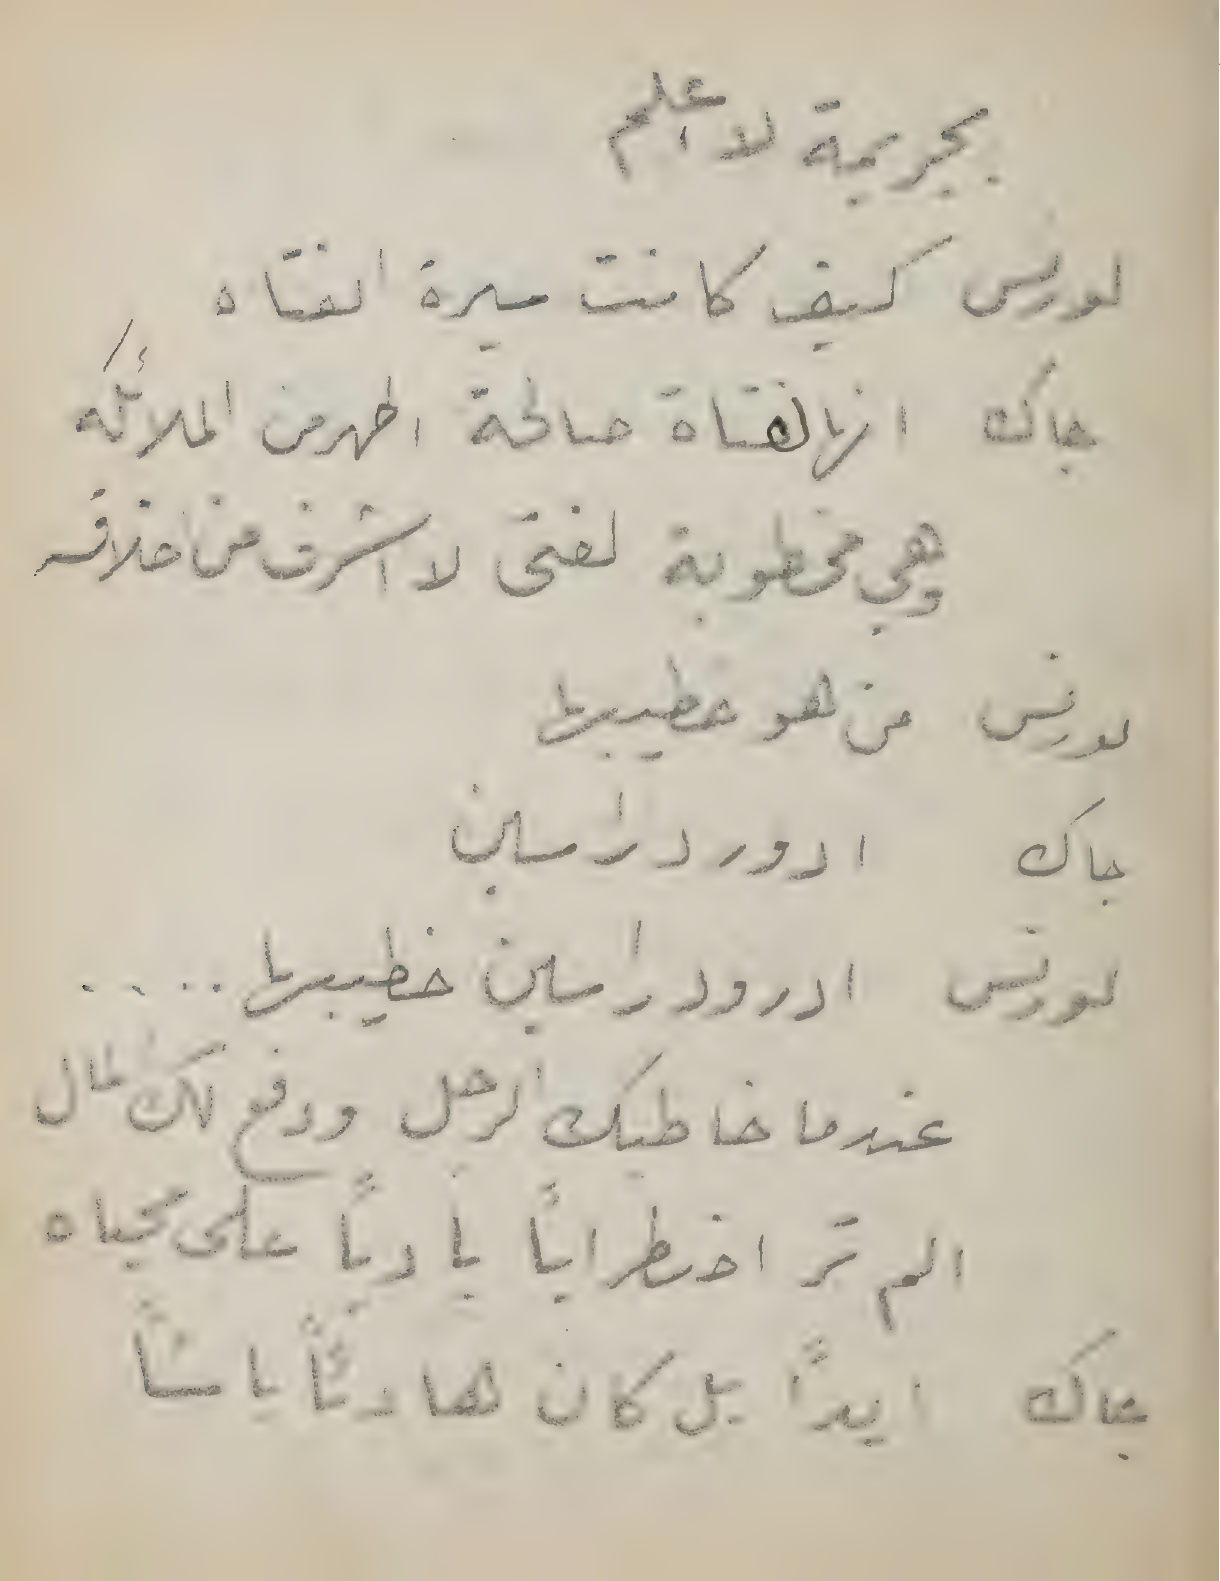 بجريمة لا اعلم
لورنس كيف كانت سيرة الفتاه
جاك انها لفتاة صالحة اطهر من الملائكه
وهي مخطوبة لفتى لا اشرف من اخلاقه
لورنس من هو خطيبها
جاك ادورد راسين
لورنس ادرود راسين خطيبها .....
عندما خاطبك الرجل ودفع لك المال
الم تر اضطرابًا باديًا على محياه
جاك ابدًا بل كان هادئًا باسمًا